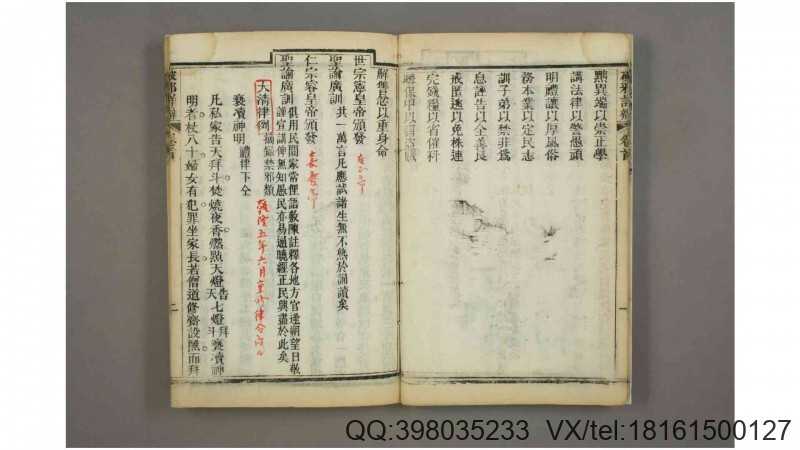 黜異端以崇正學
講法律以警愚頑
明禮讓以厚風俗
務本業以定民志
訓子弟以禁非為
息誣告以全善良
戒匿逃以免株連
完錢糧以省催科
聯保甲以弭盜賊
解讐忿以重身命
世宗憲皇帝頒發
聖諭廣訓
共一萬言凡應試諸生無不熟於誦讀矣
仁宗睿皇帝頒發
聖諭廣訓
俱用民間家常俚語敷陳註釋各地方官逢朔望日敬
謹宣講俾無知愚民亦易通曉經正民興盡於此矣
大清律例
摘編禁邪類
褻瀆神明
禮律下仝
凡私家告天拜斗焚燒夜香燃點天燈告天七燈拜斗褻瀆神
明者杖八十婦女有犯罪坐家長若僧道修齋設醮而拜
二
一
QQ:398035233 VX/tel:18161500127